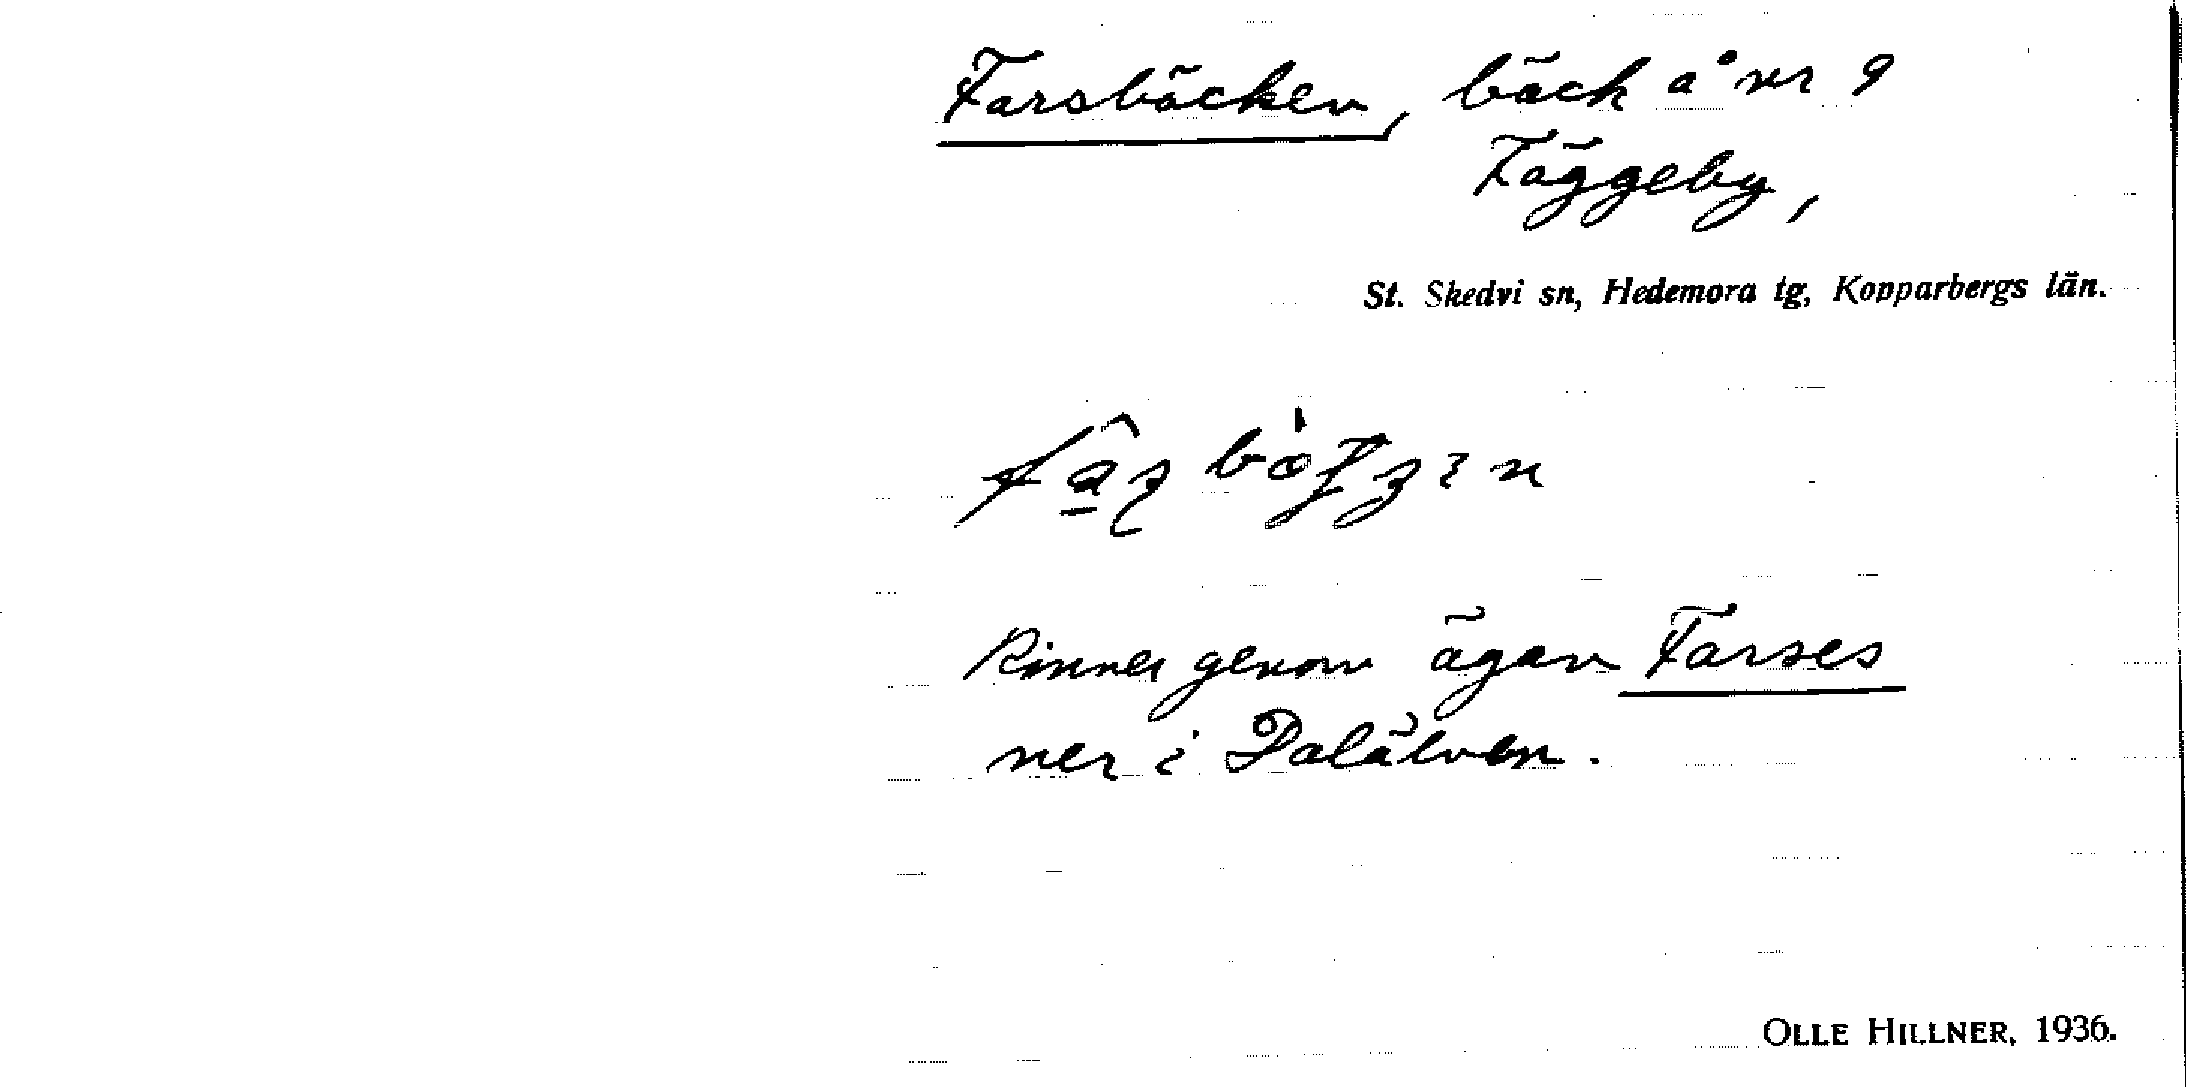 Farsbäcken, bäck å nr 9
Fäggeby,
St. Skedvi sn, Hedemora tg, Kopparbergs län.
Rinner genom ägan Farses
ner i Dalälven.
OLLE HILLNER, 1936.